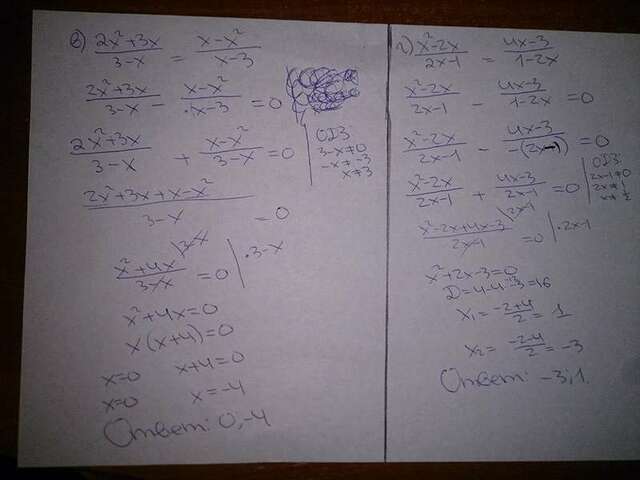 в) (2x²+3x)/(3-x) = (x-x²)/(x-3)
(2x²+3x)/(3-x) - (x-x²)/(x-3) = 0
(2x²+3x)/(3-x) + (x-x²)/(3-x) = 0
ОДЗ
3-x≠0
-x≠-3
x≠3
(2x²+3x+x-x²)/(3-x) = 0
(x²+4x)/(3-x) = 0 | ·3-x
x²+4x=0
x(x+4)=0
x=0 x+4=0
x=0 x=-4
Ответ: 0,-4
г) (x²-2x)/(2x-1) = (4x-3)/(1-2x)
(x²-2x)/(2x-1) - (4x-3)/(1-2x) = 0
(x²-2x)/(2x-1) - (4x-3)/(-(2x-1)) = 0
(x²-2x)/(2x-1) + (4x-3)/(2x-1) = 0
ОДЗ
2x-1≠0
2x≠1
x≠1/2
(x²-2x+4x-3)/(2x-1) = 0 | ·2x-1
x²+2x-3=0
D=4-4·-3=16
x₁=(-2+4)/2=1
x₂=(-2-4)/2=-3
Ответ: -3;1.